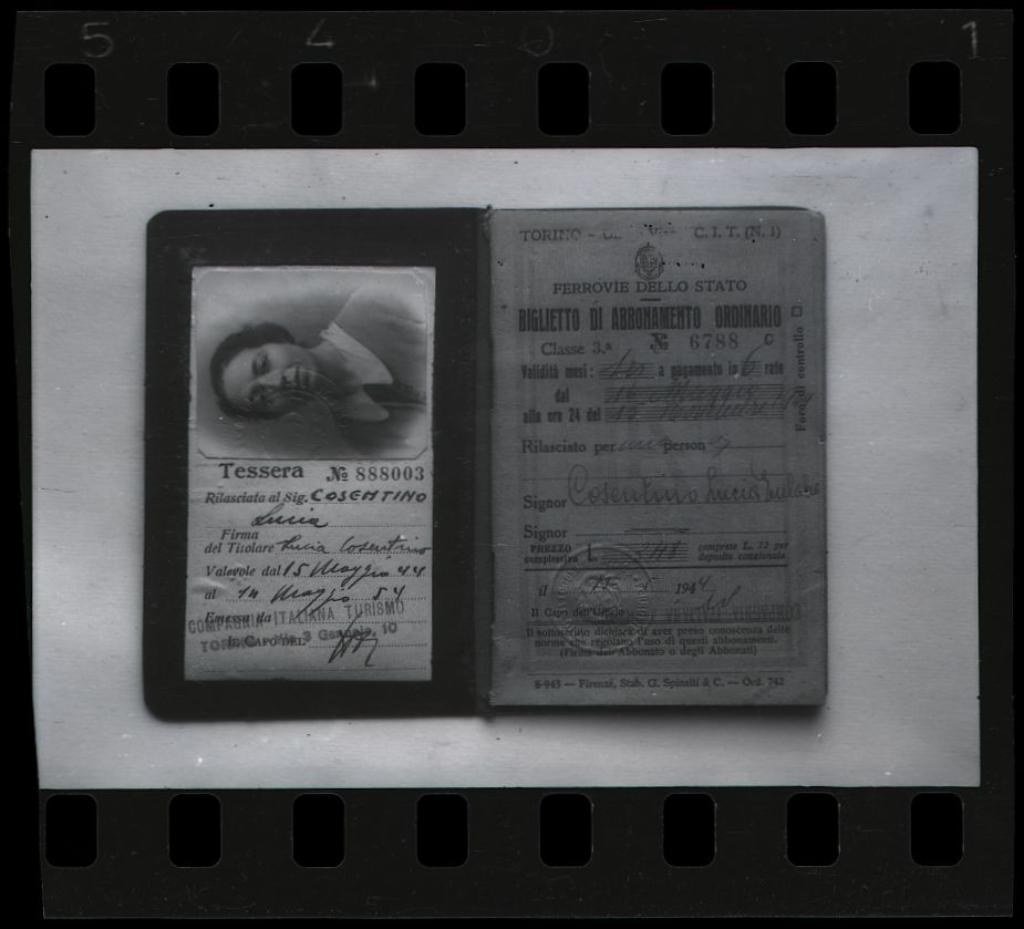 5 4 0 1
Tessera № 888003
Rilasciata al Sig. COSENTINO
Lucia
Firma
del Titolare Lucia Cosentino
Valevole dal 15 Maggio 44
al 14 Maggio 54
Emessa da
COMPAGNIA ITALIANA TURISMO
IL CAPO DEL
TORINO 10
TORINO - C.I.T. (N. 1)
FERROVIE DELLO STATO
BIGLIETTO DI ABBONAMENTO ORDINARIO
Classe 3.ª № 6788 C
Validità mesi: a pagamento in 6 rate
dal Maggio
alle ore 24 del
Foro di controllo
Rilasciato per una person
Signor Cosentino Lucia
Signor
PREZZO complessivo L. comprese L. 72 per deposito cauzionale
il 1944
Il Capo dell'Ufficio
Il sottoscritto dichiara di aver preso conoscenza delle
norme che regolano l'uso di questi abbonamenti.
(Firma dell'Abbonato o degli Abbonati)
S-943 — Firenze, Stab. G. Spinelli & C. — Ord. 742